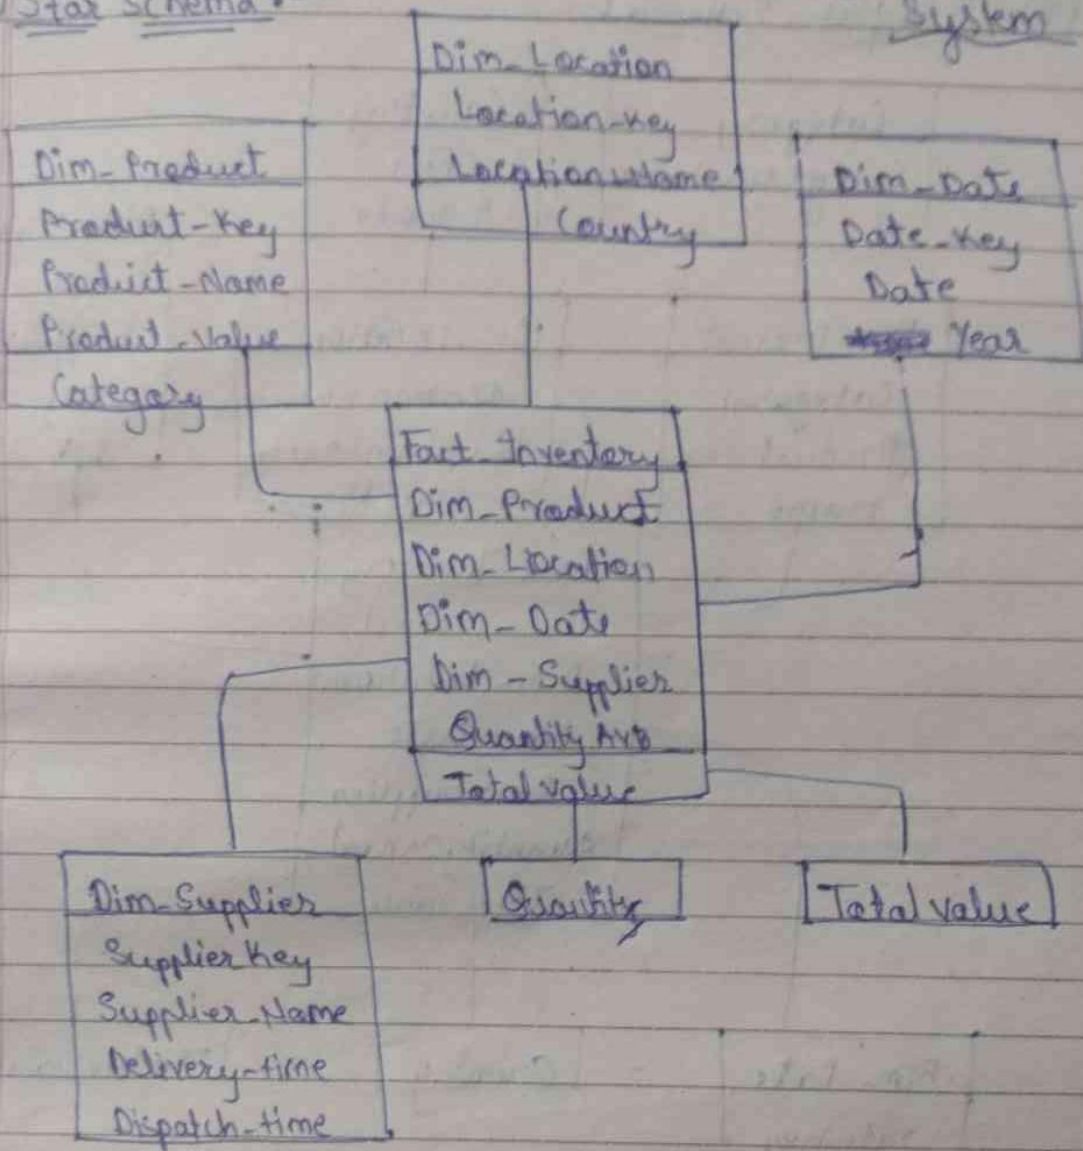 Star Schema :
System
Dim_Location
Location-Key
Location Name
Country
Dim-Product
Product-Key
Product-Name
Product-Value
Category
Dim-Date
Date-Key
Date
Year
Fact_Inventory
Dim-Product
Dim-Location
Dim-Date
Dim-Supplier
Quantity
Total value
Dim-Supplier
Supplier Key
Supplier-Name
Delivery-time
Dispatch-time
Quantity
Total value